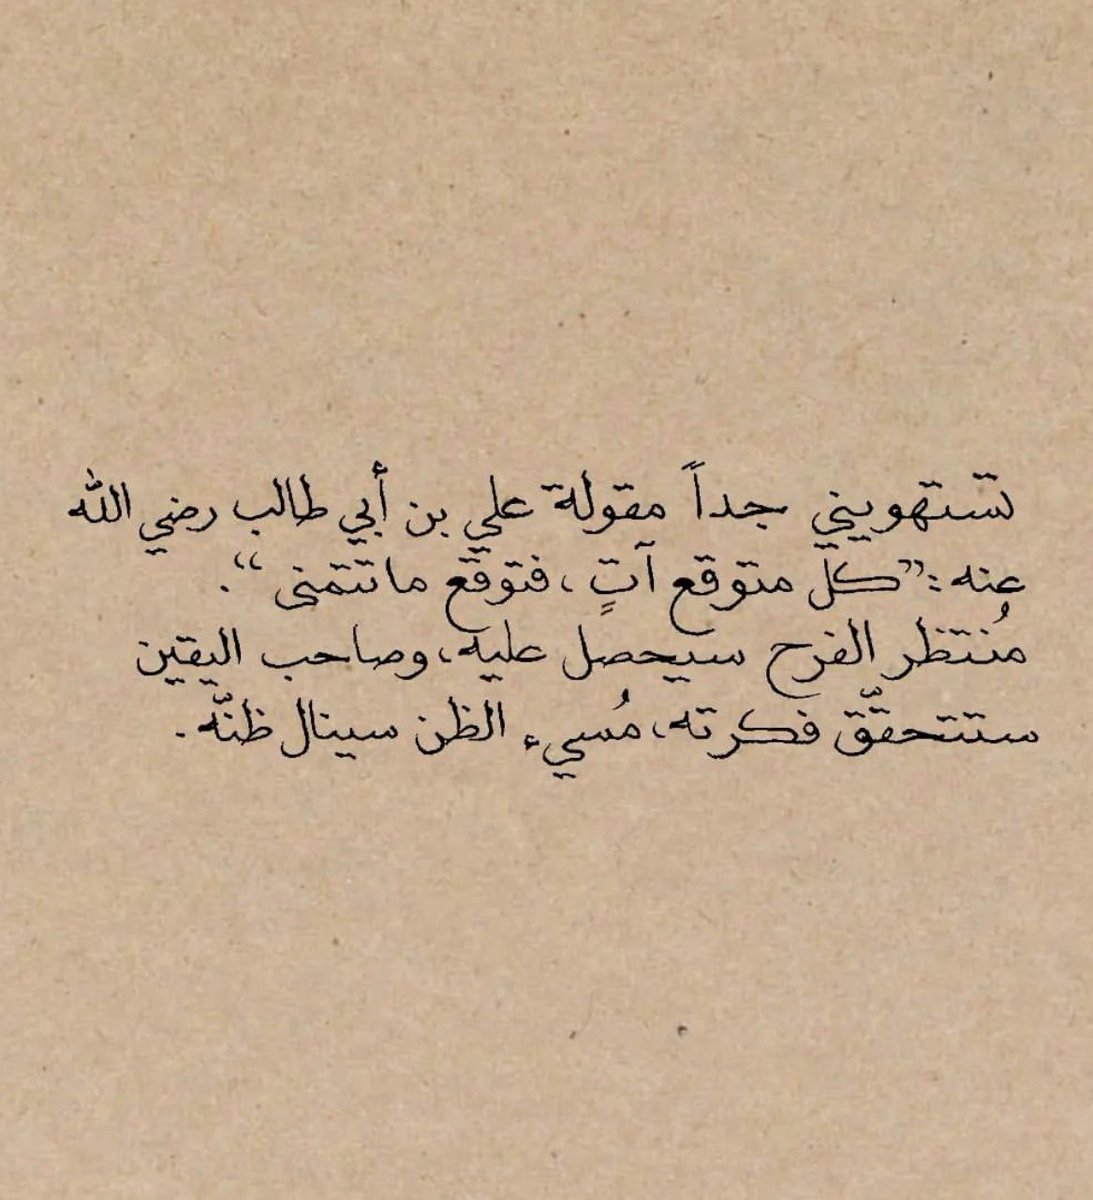 تستهويني جداً مقولة علي بن أبي طالب رضي الله
عنه :”كلّ متوقع آتٍ ، فتوقع ما تتمنى “.
مُنتظر الفرح سيحصل عليه، وصاحب اليقين
ستتحقّق فكرته، مُسيء الظن سينال ظنّه .